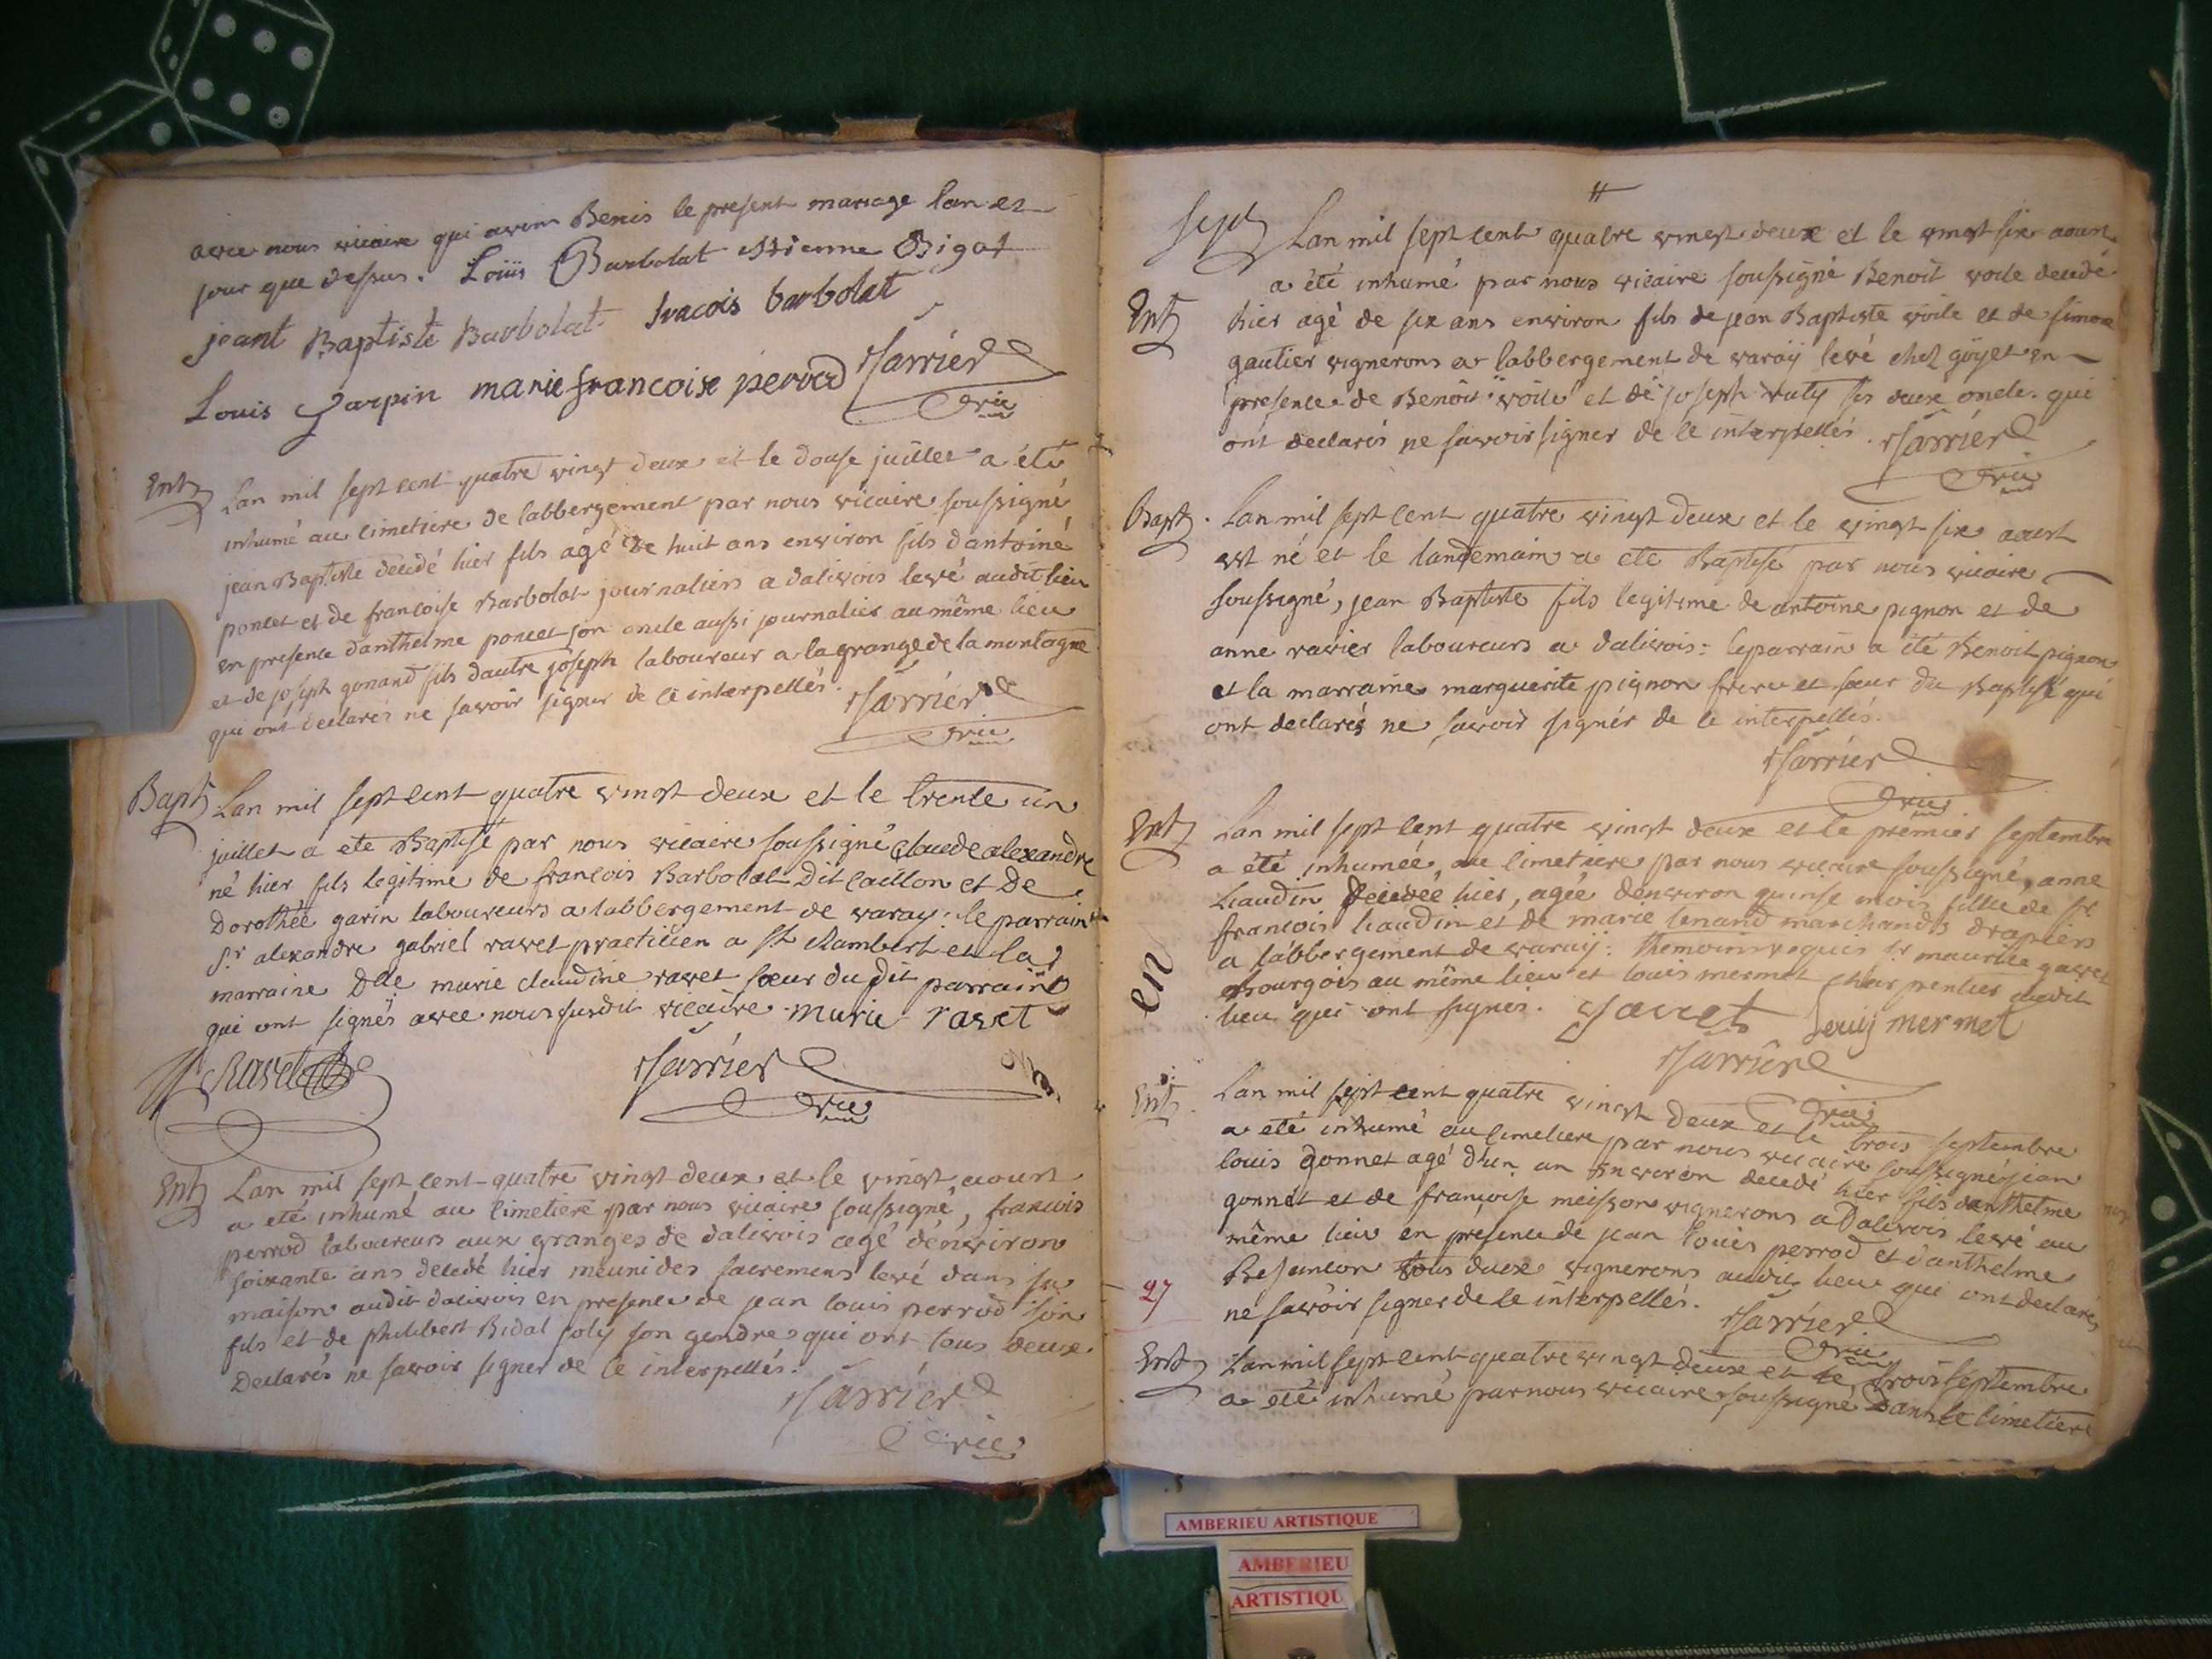 avec nous vicaire qui avons Benis le present mariage lan et
jour que dessus. Loüis Barbolat Etienne Bigot
jeant Baptiste Barbolat fracois barbolat
Louis Jarpin marie francoise perrod
vic
Ent
Lan mil sept cent quatre vingt deux et le douse juillet a été
inhumé au cimetiere de labbergement par nous vicaire soussigné
jean Baptiste decedé hier fils agé de huit ans environ fils dantoine
poncet et de francoise Barbolat journaliers a dalivois levé audit lieu
en presence danthelme poncet son oncle aussi journalier au même lieu
et de joseph gonand fils dautre joseph laboureur a la grange de la montagne
qui ont declarés ne savoir signer de ce interpellés.
vic
Bapt
Lan mil sept cent quatre vingt deux et le trente un
juillet a ete Baptisé par nous vicaire soussigné claude alexandre
né hier fils legitime de francois Barbolat dit caillon et De
Dorothée garin laboureurs a labbergement de varay: le parrain
Sr alexandre gabriel ravet practicien a St Rambert et la
marraine Dlle marie claudine ravet sœur du dit parrain
qui ont signés avec nous susdit vicaire marie ravet
Ravet
vic
Ent
Lan mil sept cent quatre vingt deux et le vingt aoust
a eté inhumé au cimetiere par nous vicaire soussigné, francois
perrod laboureurs aux granges de dalivois agé denviron
soixante ans decedé hier meuni des sacremens levé dans sa
maison audit dalivois en presence de jean louis perrod son
fils et de philibert Bidal joly son gendre qui ont tous deux
Declarés ne savoir signer de ce interpellés.
vic
Sept
Lan mil sept cent quatre vingt deux et le vingt six aoust
a été inhumé par nous vicaire soussigné Benoit voile decedé
Ent
hier agé de six ans environ fils de jean Baptiste voile et de simone
gautier vignerons a labbergement de varaÿ levé chez göyet en
presence de Benoit voile et de joseph ses deux oncle qui
ont declarés ne savoir signer de ce interpellés.
vic
Bapt.
Lan mil sept cent quatre vingt deux et le vingt six aoust
est né et le landemain a ete Baptisé par nous vicaire
soussigné, jean Baptiste fils legitime de antoine pignon et de
anne ravier laboureurs a dalivois: le parrain a été Benoit pignon
et la marraine marguerite pignon frere et sœur du Baptisé qui
ont declarés ne savoir signér de ce interpellés.
vic
Ent
Lan mil sept cent quatre vingt deux et le premier septembre
a été inhumeé, au cimetiere par nous vicaire soussigné, anne
Liaudin decedeé hier, agée denviron quinse mois fille de Sr
francois liaudin et de marie lenand marchands drapiers
a labbergement de varaÿ: themoins requis Sr maurice gavet
Bourgois au même lieu et louis mermet charpentier audit
en
lieu qui ont signés. Gavet Louis mermet
vic
Ent.
Lan mil sept cent quatre vingt deux et le trois septembre
a eté inhumé au cimetiere par nous vicaire soussigné jean
louis gonnet agé d'un an environ decedé hier fils danthelme
gonnet et de françoise meisson vignerons a Dalivois levé au
même lieu en presence de jean louis perrod et d'anthelme
Besancon tous deux vignerons audit lieu qui ont declarés
27
ne savoir signer de ce interpellés.
vic
Ent
Lan mil sept cent quatre vingt deux et le trois septembre
a eté inhumé par nous vicaire soussigné Dans le cimetiere
AMBERIEU ARTISTIQUE
AMBERIEU
ARTISTIQU